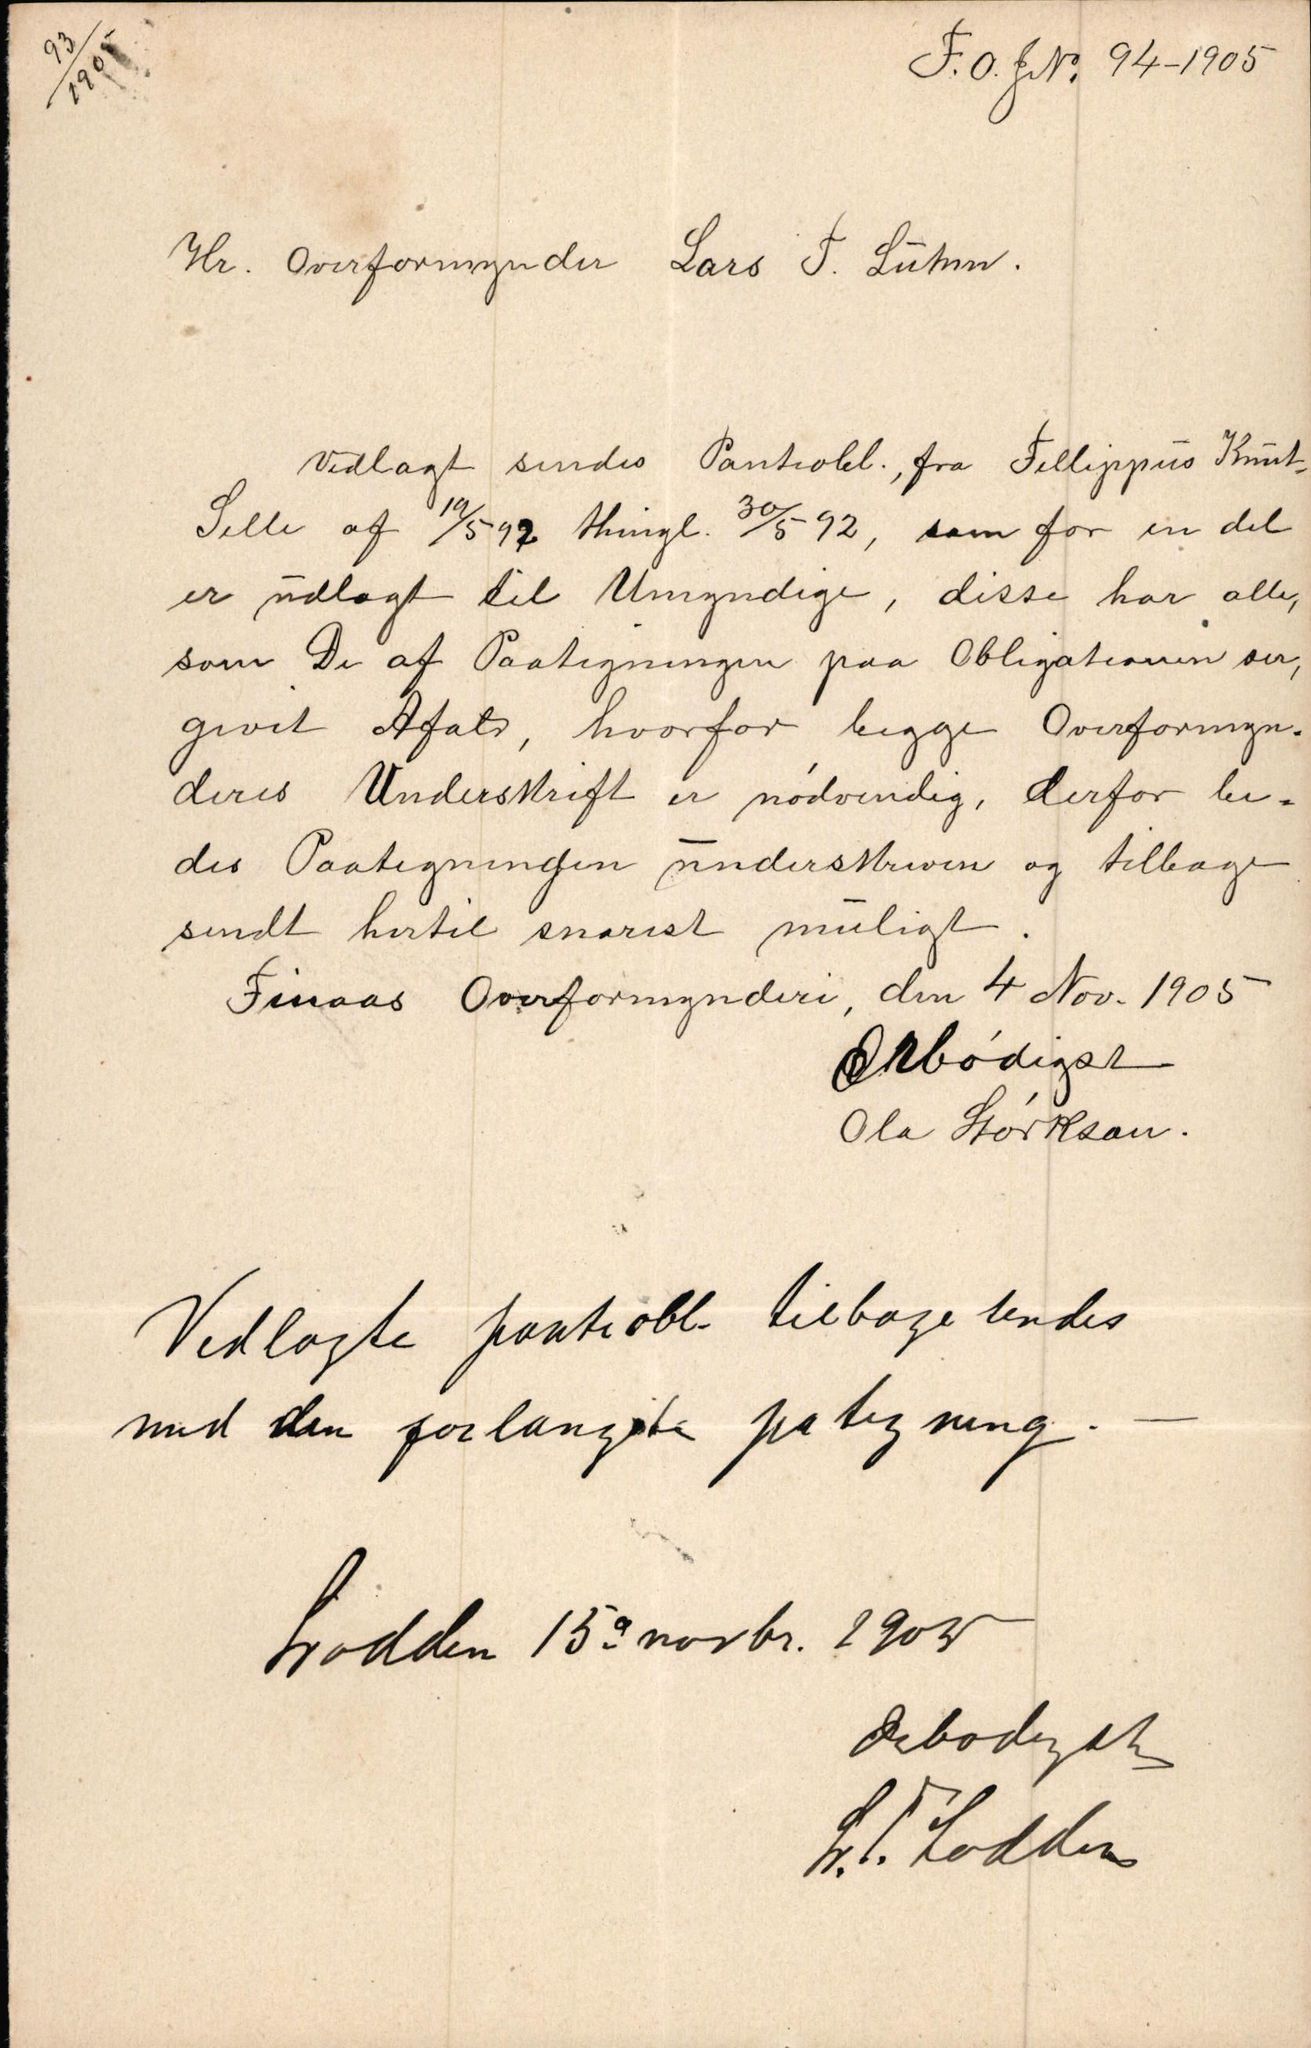 93/1905
F. O. J№. 94-1905
Hr. Overformynder Lars T.
Vedlagt sendes Panteobl., fra Fillippus Knut-
Selle af 19/5 92 thingl. 30/5 92, som for en del
er udlagt til Umyndige, disse har alle,
som De af Paategningen paa Obligationen ser,
givet Afald, hvorfor begge Overformyn-
deres Underskrift er nødvendig, derfor be-
des Paategningen underskreven og tilbage
sendt hertil snarest muligt.
Finaas Overformynderi, den 4 Nov. 1905
Ærbødigst
Ola Størkson.
Vedlagte panteobl. tilbagesendes
med den forlangte pategning. —
Lodden 15de novbr. 1905
Ærbødigst
L. T. Lodden